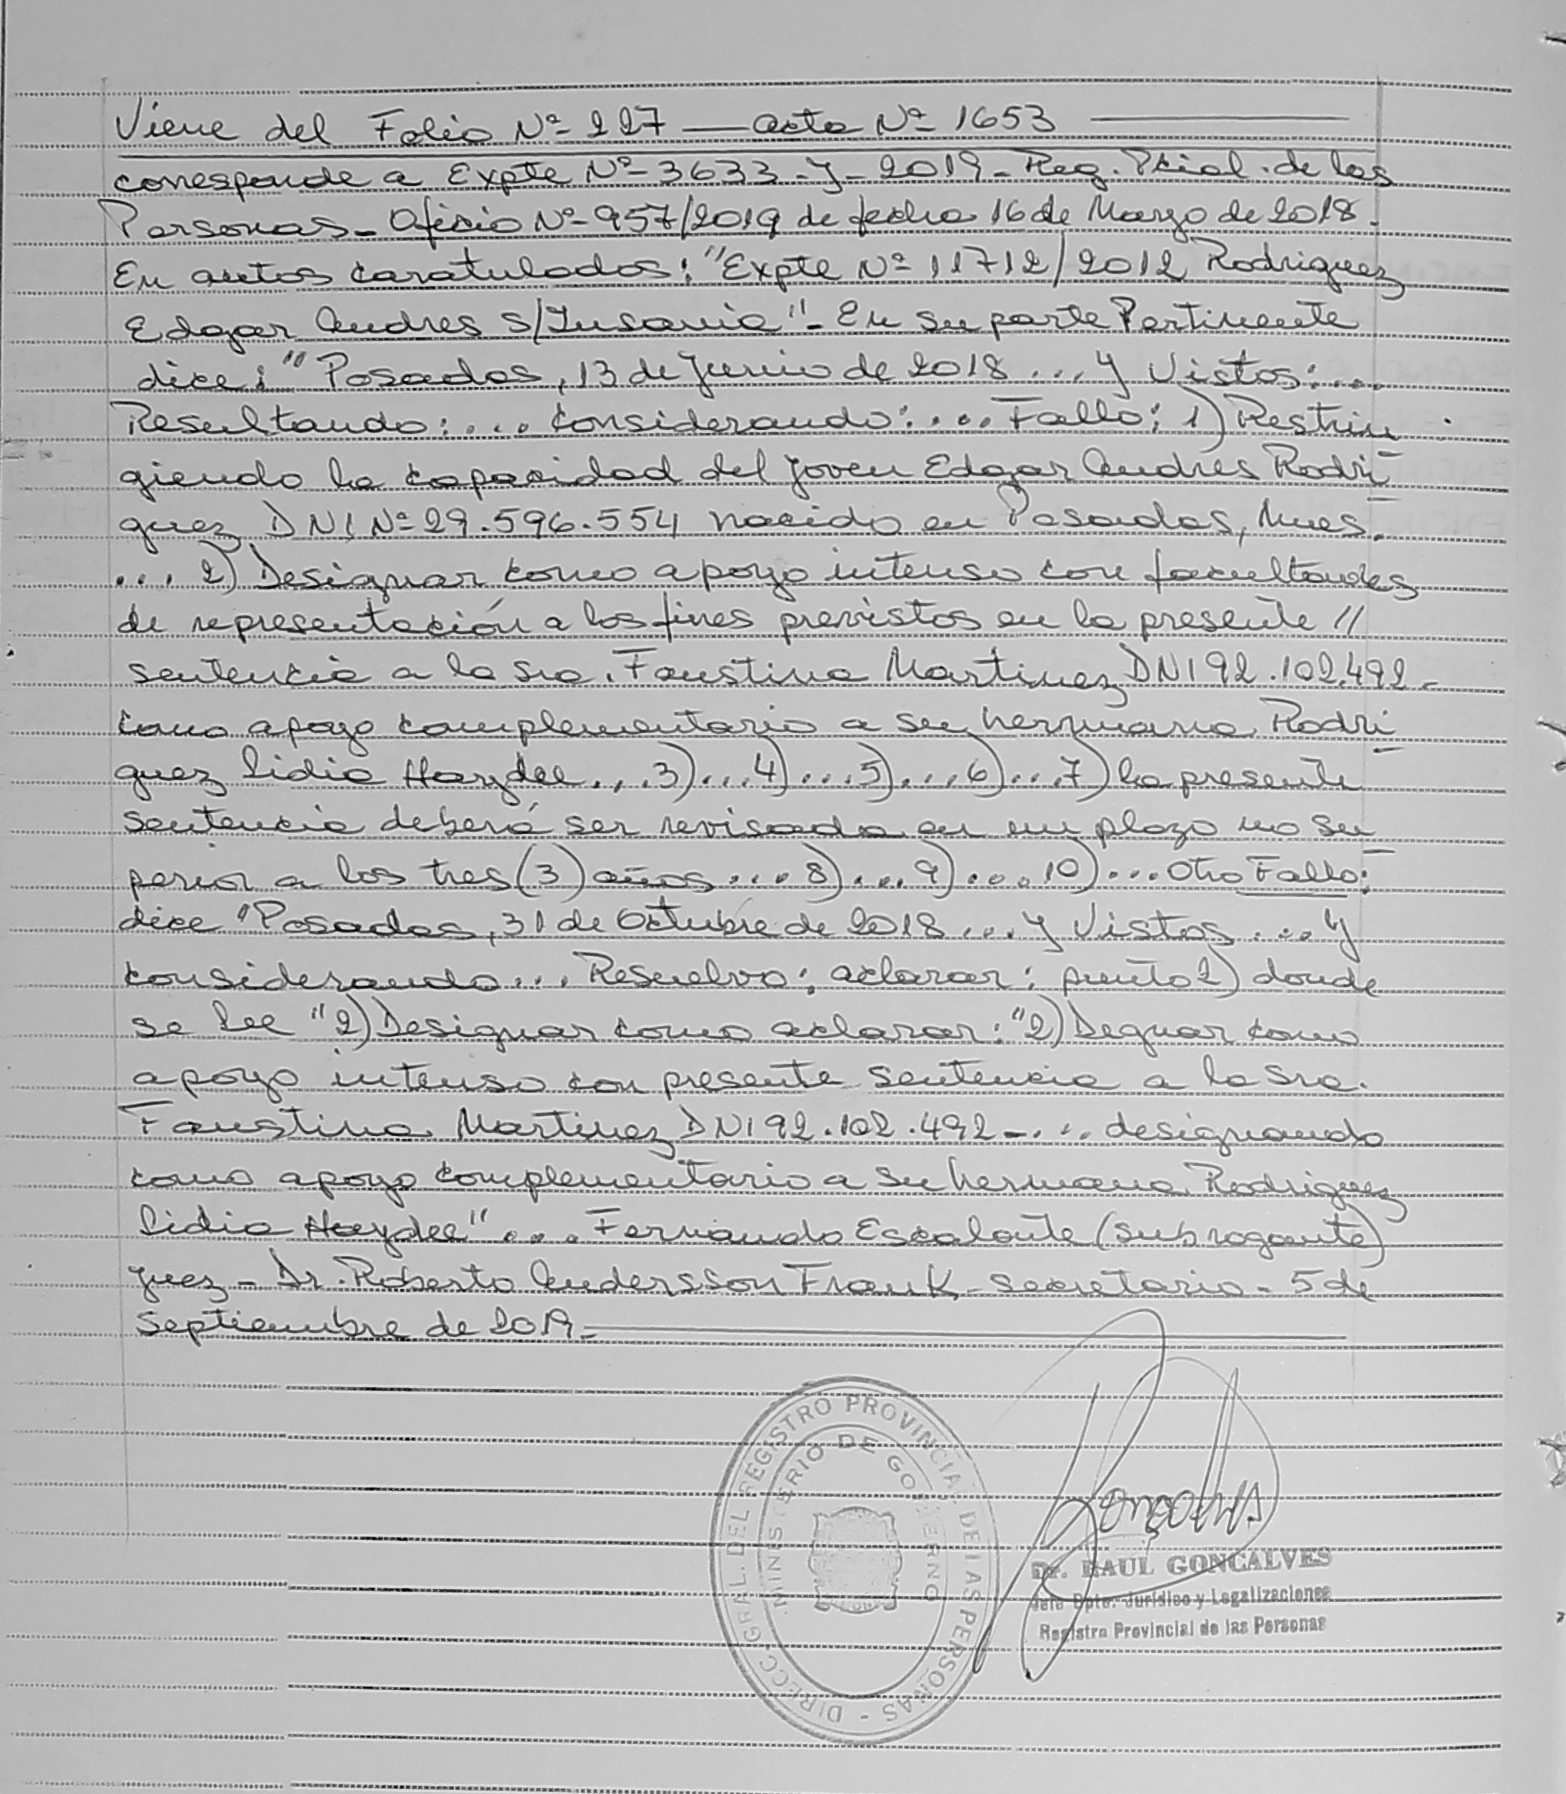 Viene del Folio Nº 227 — acta Nº 1653
corresponde a Expte Nº 3633-Y-2019- Reg. Pcial. de las
Personas- Oficio Nº 957/2019 de fecha 16 de Marzo de 2018.
En autos caratulados: "Expte Nº 11712/2012 Rodriguez
Edgar Andres s/Insania"- En su parte Pertinente
dice: "Posadas, 13 de Junio de 2018 ... y Vistos: ...
Resultando: ... Considerando: ... Fallo: 1) Restrin
giendo la capacidad del joven Edgar Andres Rodri
guez DNI Nº 29.596.554 nacido en Posadas, Mnes.
... 2) Designar como apoyo intenso con facultades
de representación a los fines previstos en la presente //
sentencia a la sra. Faustina Martinez DNI 92.102.492-
como apoyo complementario a su hermana Rodri
guez Lidia Haydee ... 3) ... 4) ... 5) ... 6) ... 7) la presente
sentencia deberá ser revisada en un plazo no su
perior a los tres (3) años ... 8) ... 9) ... 10) ... Otro Fallo:
dice "Posadas, 31 de Octubre de 2018 ... y Vistos ... y
considerando ... Resuelvo: aclarar: punto 2) donde
se lee "2) Designar como aclarar: "2) Degnar como
apoyo intenso con presente sentencia a la sra.
Faustina Martinez DNI 92.102.492-... designando
como apoyo complementario a su hermana Rodriguez
Lidia Haydee" ... Fernando Escalante (subrogante)
Juez - Dr. Roberto Andersson Frank - secretario - 5 de
septiembre de 2019.-
DIRECC. GRAL. DEL REGISTRO PROVINCIAL DE LAS PERSONAS -
MINISTERIO DE GOBIERNO
Dr. RAUL GONCALVES
Jefe Dpto. Jurídico y Legalizaciones
Registro Provincial de las Personas